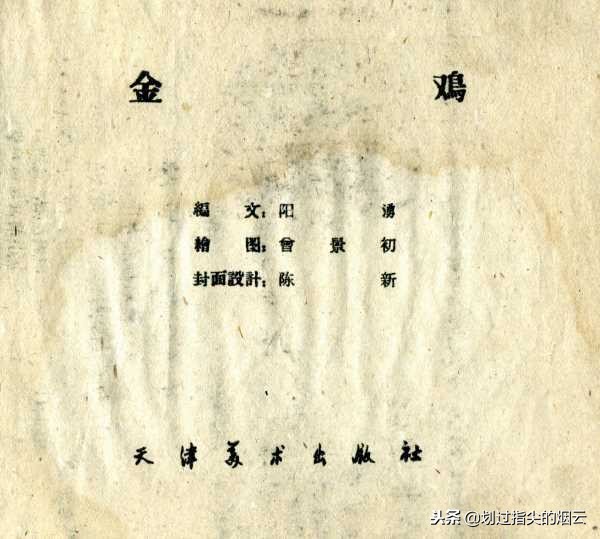 金鸡
編文：阳湧
繪图：曾景初
封面設計：陈新
天津美术出版社
头条@划过指头的烟云